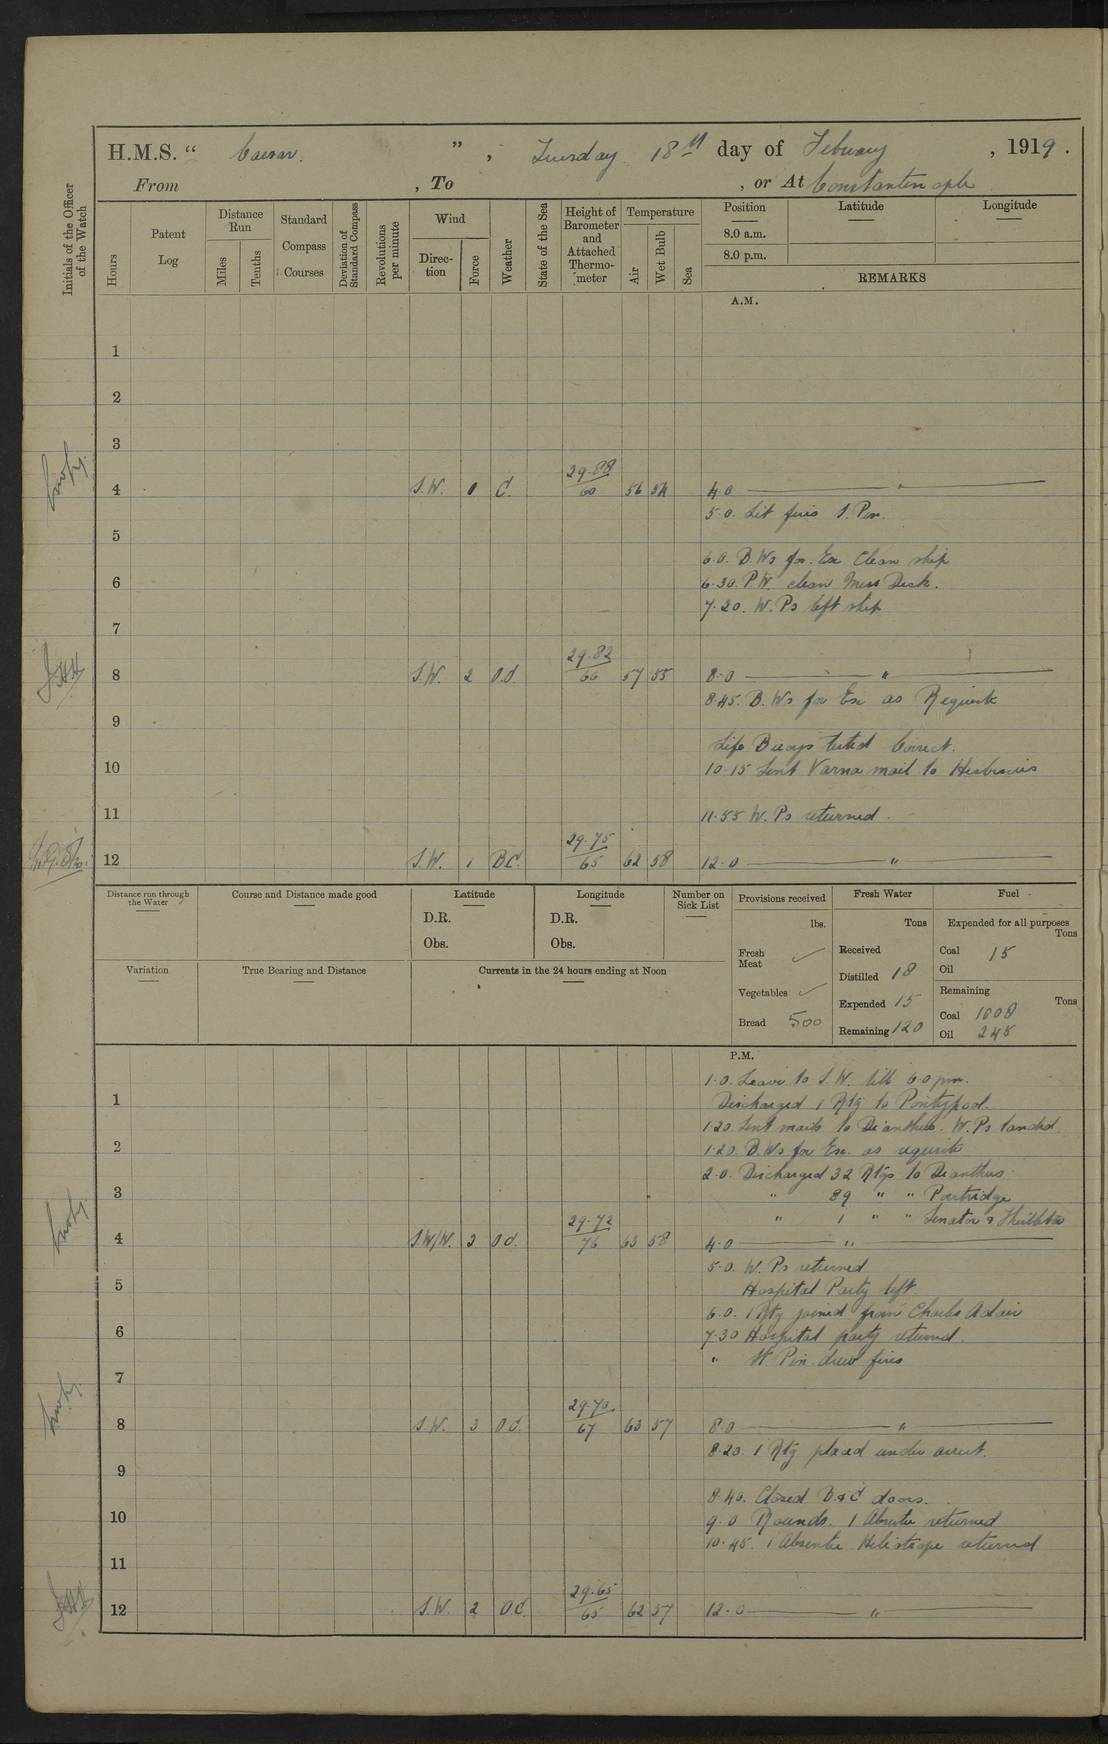 H.M.S. “ Caesar. ” , Tuesday 18th day of Febuary , 1919.
From , To , or At Constantinople
Initials of the Officer of the Watch
Hours
Patent Log
Distance Run
Miles
Tenths
Standard Compass Courses
Deviation of Standard Compass
Revolutions per minute
Wind
Direction
Force
Weather
State of the Sea
Height of Barometer and Attached Thermometer
Temperature
Air
Wet Bulb
Sea
Position
Latitude
Longitude
8.0 a.m.
8.0 p.m.
REMARKS
A.M.
1
2
3
4 S.W. 0 C. 29.88/60 56 54 4.0 "
5.0. Lit fires S. Pin.
5
6.0. B.Ws for. Ex Clean ship
6 6.30. P.W. clean Mess Deck.
7.20. W. Ps left ship
7
8 S.W. 2 O.d 29.82/66 57 55 8.0 "
8.45. B. Ws for Ex as Requisite
9
Life Buoys tested Correct.
10 10.15 Sent Varna mail to Heribiscus
11 11.55 W. Ps returned.
12 S.W. 1 BC. 29.75/65 62 58 12.0 "
Distance run through the Water
Course and Distance made good
Latitude
D.R.
Obs.
Longitude
D.R.
Obs.
Number on Sick List
Provisions received
lbs.
Fresh Meat ✓
Vegetables ✓
Bread 500
Fresh Water
Tons
Received
Distilled 18
Expended 15
Remaining 120
Fuel
Expended for all purposes
Tons
Coal 15
Oil
Remaining
Tons
Coal 1008
Oil 245
Variation
True Bearing and Distance
Currents in the 24 hours ending at Noon
P.M.
1.0. Leave to S.W. till 6.0 pm.
1 Discharged 1 Rtg to Pontypool.
1.20 Sent mails to Dianthus. W.Ps landed
2 1.20. B.Ws for Ex. as requisite
2.0. Discharged 32 Rtgs to Dianthus
3 " 89 " " Partridge
" 1 " " Senator &
4 S.W/W. 3 Od. 29.72/76 63 58 4.0 "
5.0. W. Ps returned
5 Hospital Party left
6.0. 1 Rtg joined from Charles Adair
6 7.30 Hospital party returned.
" W Pin. drew fires
7
8 S.W. 3 Od. 29.70/67 63 57 8.0 "
8.20. 1 Rtg placed under arrest.
9
8.40. Closed B & C doors.
10 9.0 Rounds. 1 Absentee returned
10.45. 1 Absentee Heliotrope returned
11
12 S.W. 2 OC. 29.65/65 62 57 12.0 "